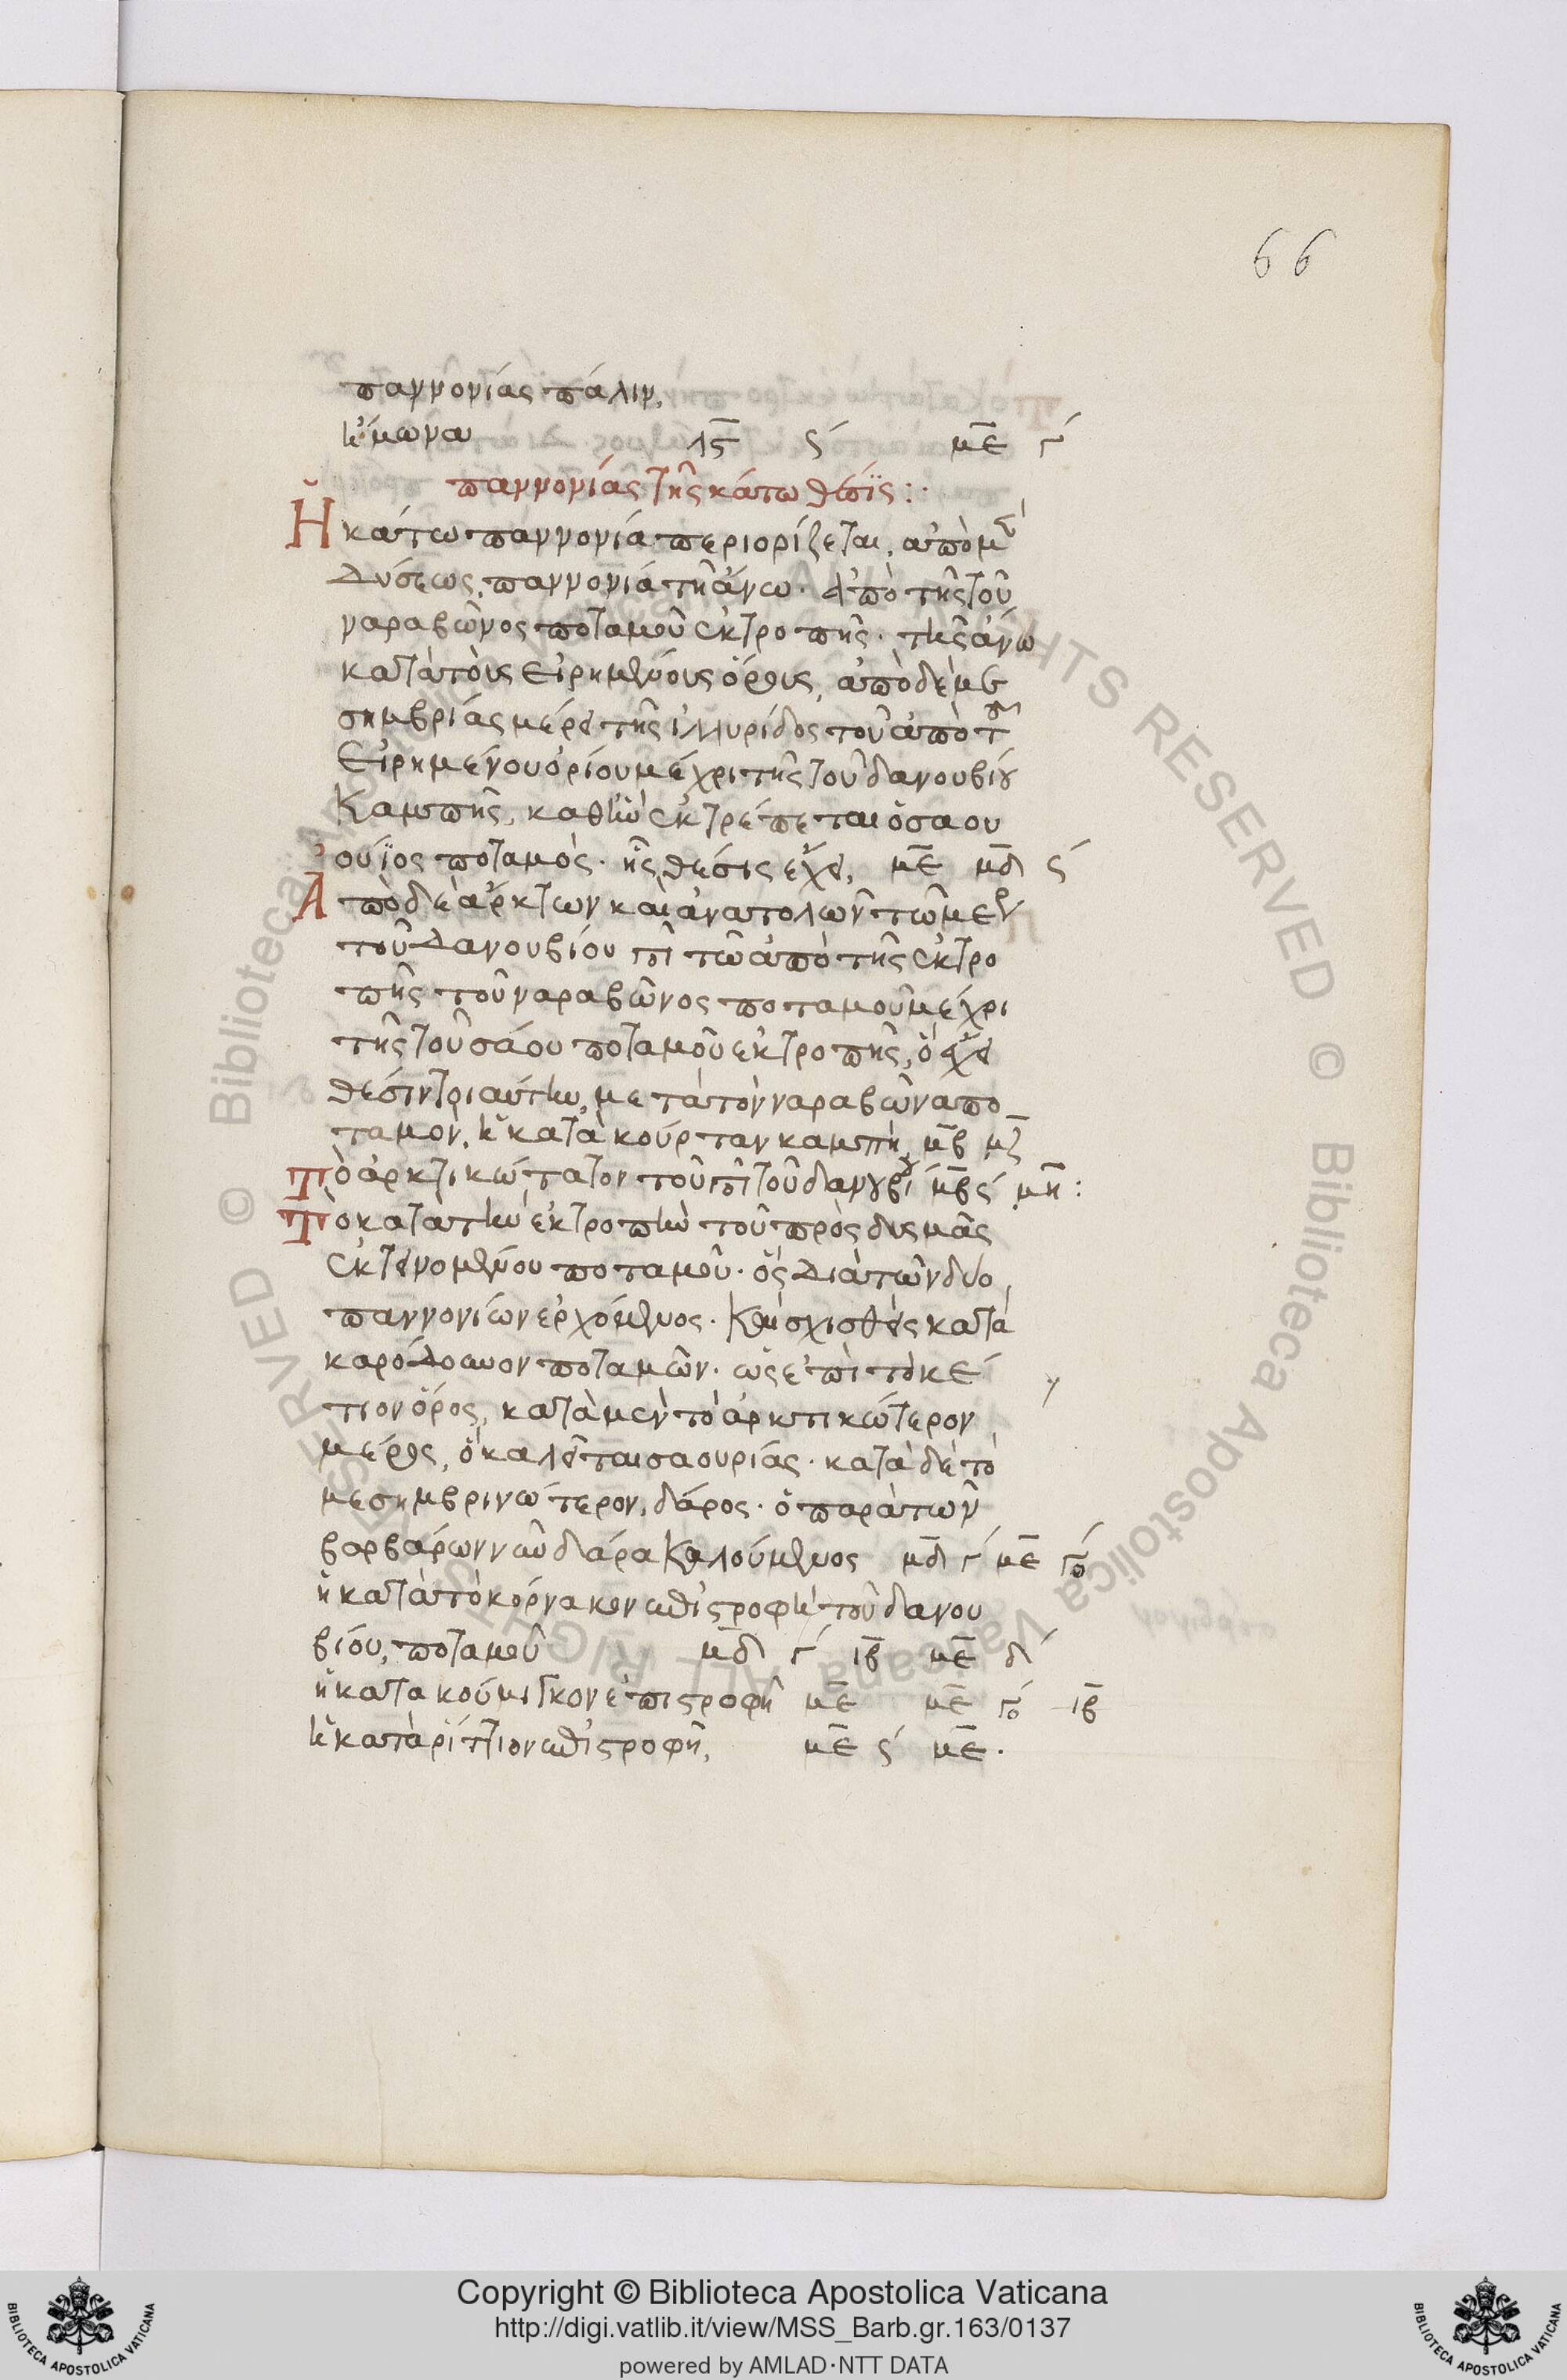 66
παννονίας πάλιν,
ἤμωνα λς ϛ´ με γ´
παννονίας τῆς κάτω θέσις:·
Ἡ κάτω παννονία περιορίζεται, ἀπὸ μὲν
δύσεως, παννονία τῆ ἄνω· ἀπὸ τῆς τοῦ
ναραβῶνος ποταμοῦ ἐκτροπῆς· τῆς ἄνω
κατὰ τοὺς εἰρημένους ὅρους, ἀπὸ δὲ με
σημβρίας μέρει τῆς ἰλλυρίδος τοῦ ἀπὸ τοῦ
εἰρημένου ὁρίου μέχρι τῆς τοῦ δανουβίου
καμπῆς, καθ' ἣν ἐκτρέπεται ὁ σαου
ούϊος ποταμός· ἧς θέσις ἔχει, με μδ ϛ´
Ἀπὸ δὲ ἄρκτων καὶ ἀνατολῶν τῶ μέρει
τοῦ δανουβίου τῶ ἀπὸ τῆς ἐκτρο
πῆς τοῦ ναραβῶνος ποταμοῦ μέχρι
τῆς τοῦ σάου ποταμοῦ ἐκτροπῆς, ὃ ἔχει
θέσιν τοιαύτην, μετὰ τὸν ναραβῶνα πο
ταμόν, ἡ κατὰ κούρταν καμπή, μβ μζ
Τὸ ἀρκτικώτατον τοῦ τοῦ δανουβίου μβ ϛ´ μη:
Τὸ κατὰ τὴν ἐκτροπὴν τοῦ πρὸς δυσμὰς
ἐκτεινομένου ποταμοῦ· ὃς διὰ τῶν δύο
παννονιῶν ἐρχόμενος· καὶ σχισθεὶς κατὰ
καρόδουνον ποταμῶν· ὡς ἐπὶ τὸ κέ
τιον ὄρος, κατὰ μὲν τὸ ἀρκτικώτερον
μέρος, ὃ καλεῖται σαουρίας· κατὰ δὲ τὸ
μεσημβρινώτερον, δάρος· ὁ παρὰ τῶν
βαρβάρων νῦν δάρα καλούμενος μδ γ´ με γο´
ἡ κατὰ τὸ κόρνακον ἐπιστροφὴ τοῦ δανου
βίου, ποταμοῦ μδ γ´ ιβ με δ´
ἡ κατα κούμιγκον ἐπιστροφή με με γο´ ιβ
ἡ κατὰ ρίττιον ἐπιστροφή, με ϛ´ με.
Copyright © Biblioteca Apostolica Vaticana
http://digi.vatlib.it/view/MSS_Barb.gr.163/0137
powered by AMLAD·NTT DATA